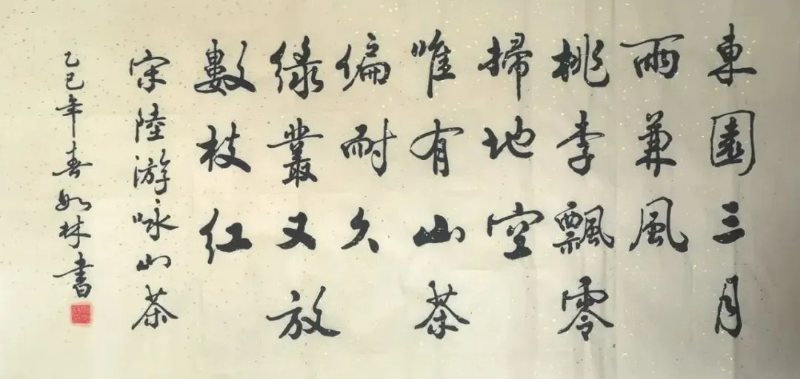 東園三月
雨兼風
桃李飄零
掃地空
唯有山茶
偏耐久
緑叢又放
數枝红
宋陸游咏山茶
乙巳年春如林書